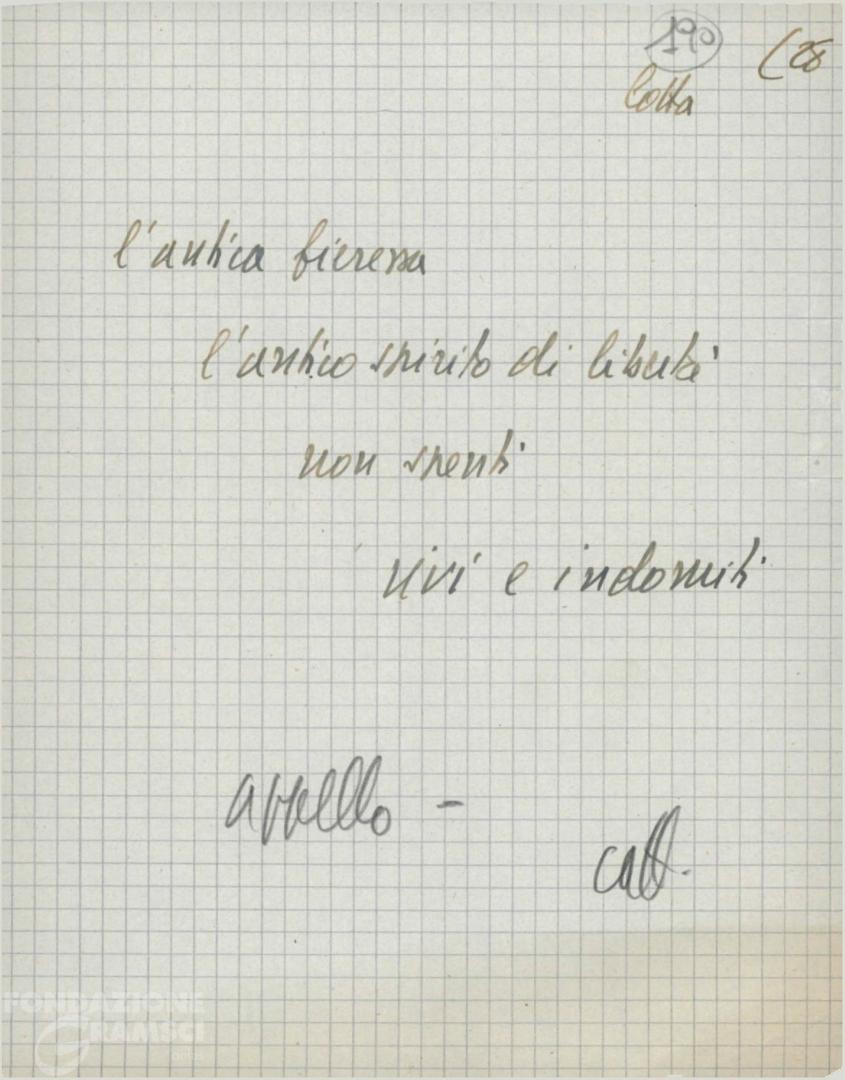 190
(28
Cotta
l'antica fierezza
l'antico spirito di libertà
non spenti
vivi e indomiti
appello -
catt.
FONDAZIONE
GRAMSCI